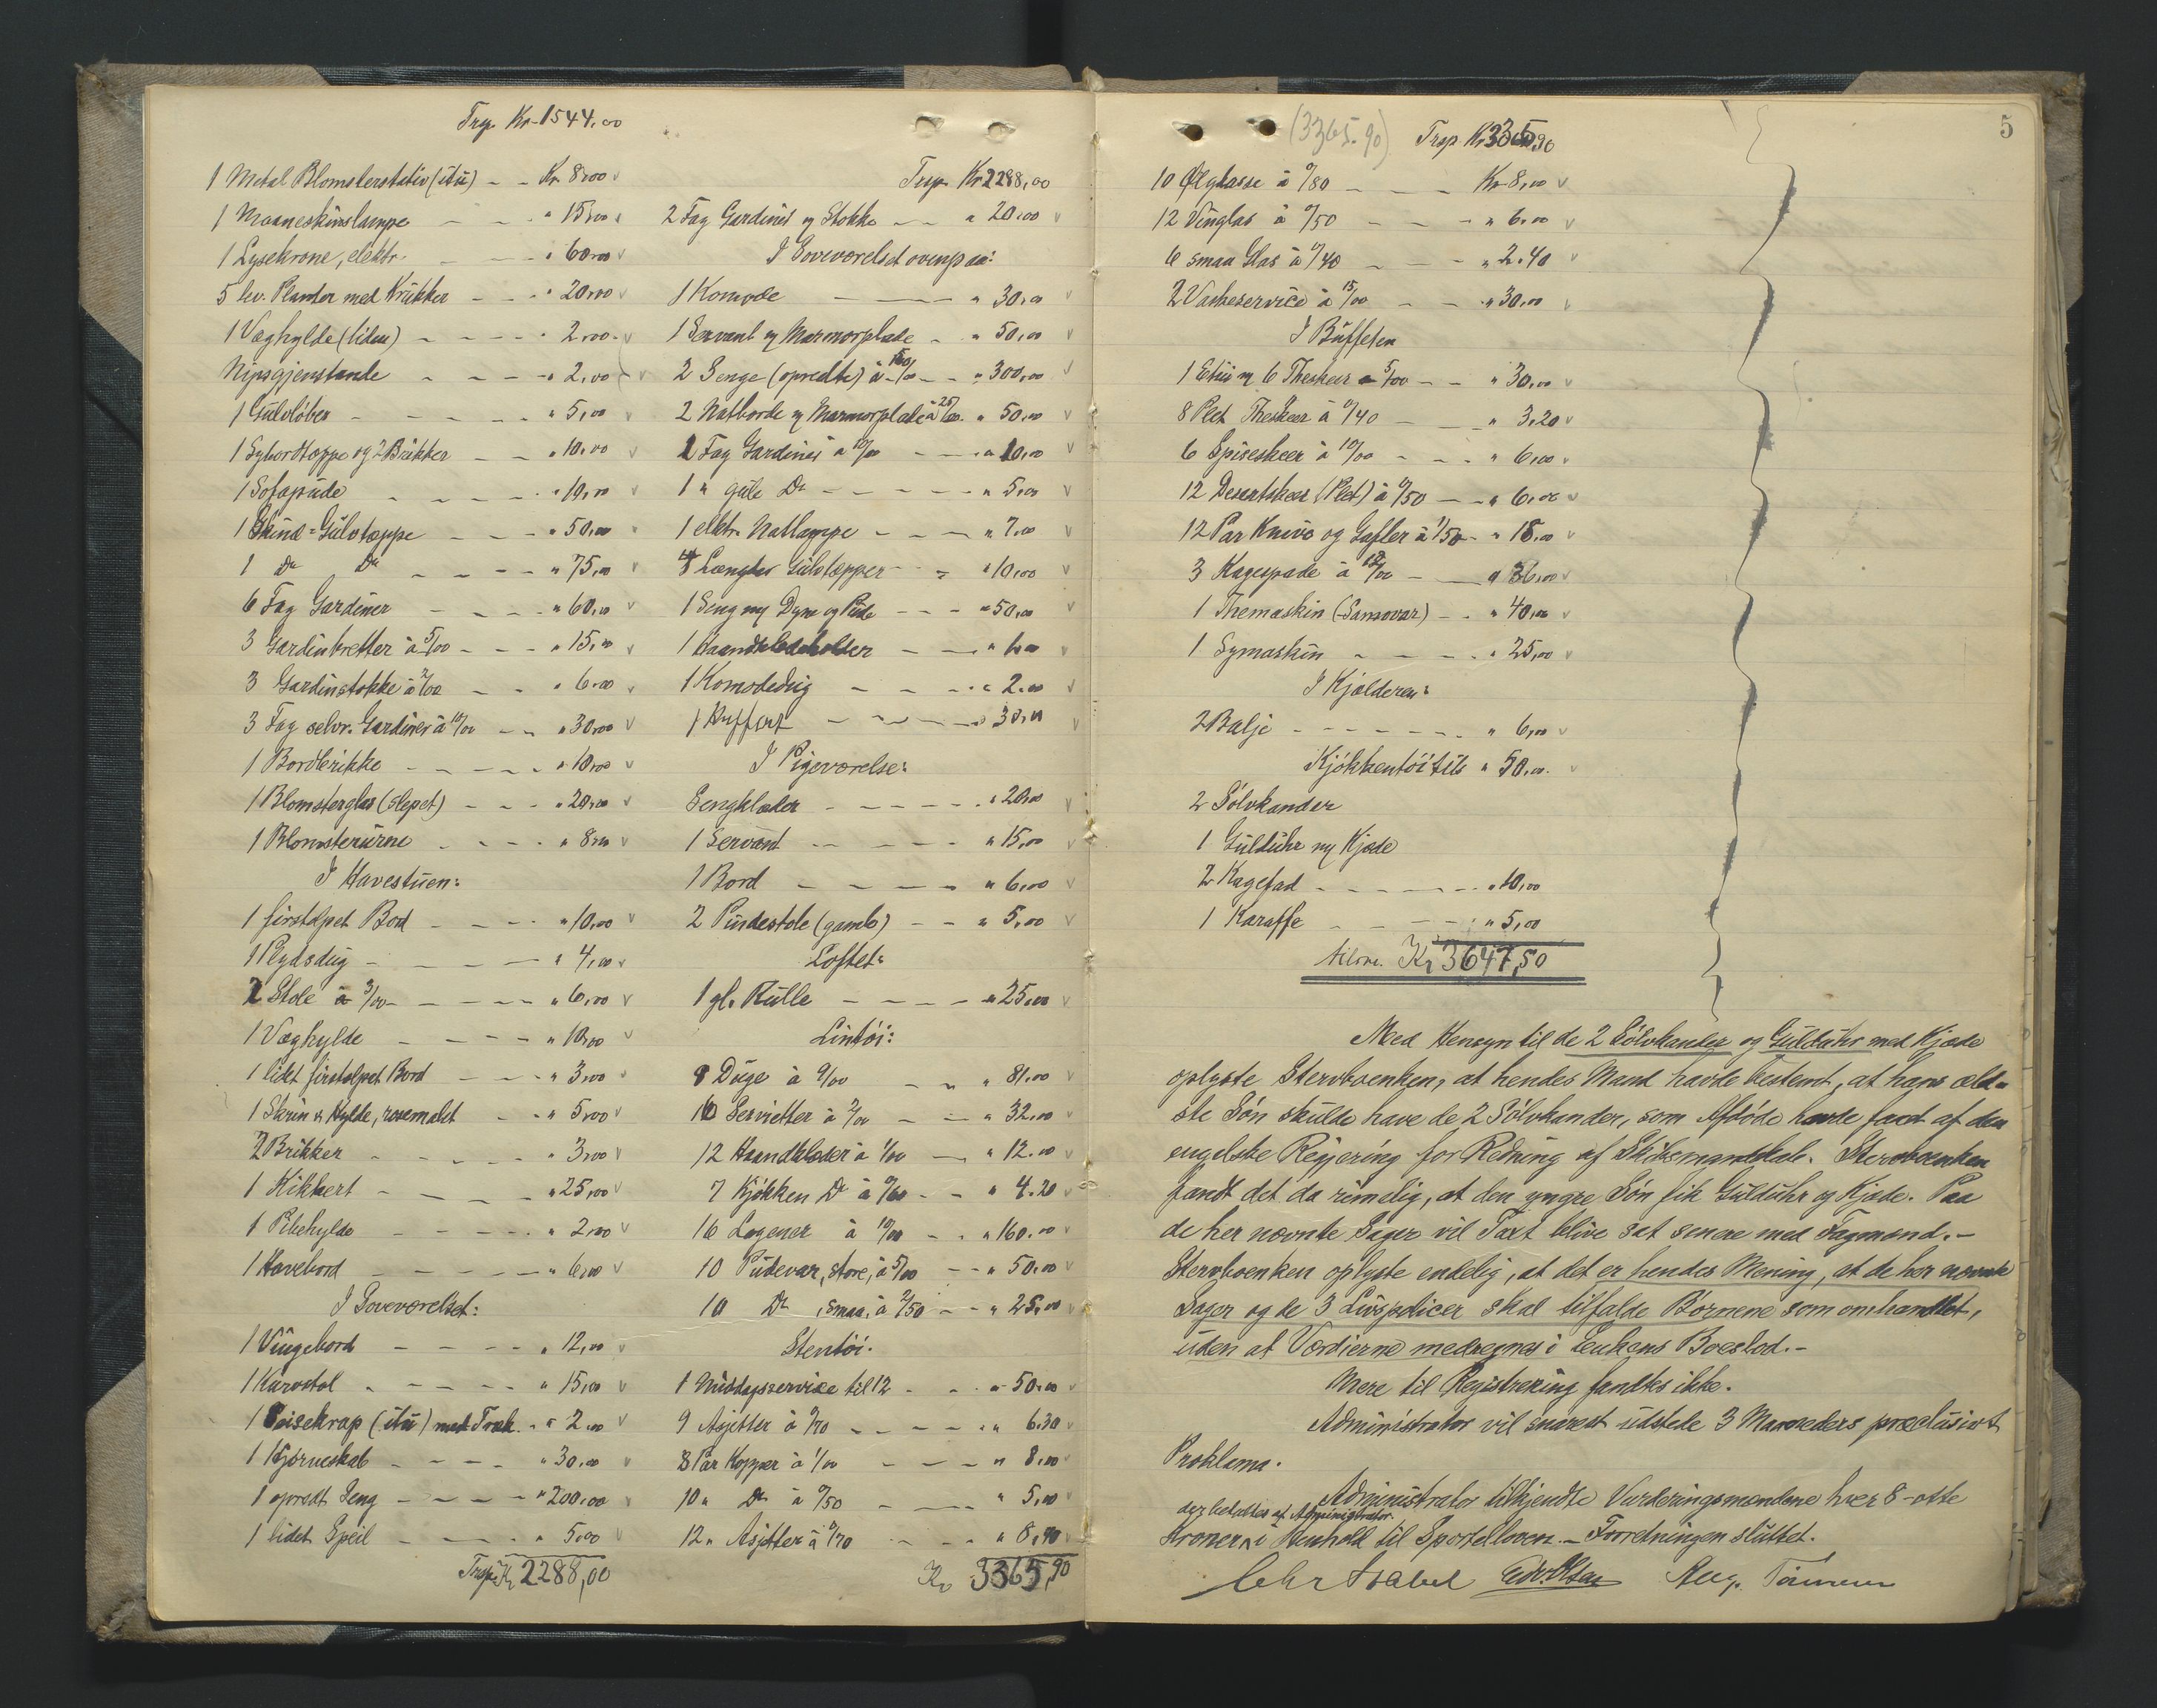 Trsp. Kr. 1544,00
1 Metal Blomsterstativ (itu) - - Kr. 8,00 v
1 Maaneskinslampe - - - " 15,00 v
1 Lysekrone, elektr. - - - " 60,00 v
5 lev. Planter med Krukker - - - " 20,00 v
1 Væghylde (liden) - - - - " 2,00 v
Nipsgjenstande - - - - " 2,00 v
1 Gulvløber - - - - " 5,00 v
1 Sybordteppe og 2 Brikker - - " 10,00 v
1 Sofapude - - - - " 10,00 v
1 Skind-Gulvteppe - - - " 50,00 v
1 Do Do - - - - " 75,00 v
6 Fag Gardiner - - - - " 60,00 v
3 Gardinbretter à 5/00 - - - " 15,00 v
3 Gardinstokke à 2/00 - - " 6,00 v
3 Fag selvr. Gardiner à 10/00 - - " 30,00 v
1 Bordbrikke - - - - " 10,00 v
1 Blomsterglas (slepet) - - - " 20,00 v
1 Blomsterurne - - - - " 8,00 v
I Havestuen:
1 firstolpet Bord - - - " 10,00 v
1 Plydsdug - - - - " 4,00 v
2 Stole à 3/00 - - - - " 6,00 v
1 Væghylde - - - - " 10,00 v
1 lidet firstolpet Bord - - - " 3,00 v
1 Skrin & Hylde, rosemalet - - " 5,00 v
2 Brikker - - - - " 3,00 v
1 Kikkert - - - - " 25,00 v
1 Pibehylde - - - - " 2,00 v
1 Havebord - - - - " 6,00 v
I Soveværelset:
1 Vingebord - - - - " 12,00 v
1 Kurvstol - - - - " 15,00 v
1 (itu) med Træk - " 2,00 v
1 Hjørneskab - - - - " 30,00 v
1 opredt Seng - - - - " 200,00 v
1 lidet Speil - - - - " 5,00 v
Trsp. Kr. 2288,00
Trsp. Kr. 2288,00
2 Fag Gardiner og Stokke - - " 20,00 v
I Soveværelset ovenpaa:
1 Komode - - - " 30,00 v
1 Servant m Marmorplade - - " 50,00 v
2 Senge (opredte) à 150/00 - - " 300,00 v
2 Natborde m Marmorplade à 25/00 " 50,00 v
1 Fag Gardiner à 10/00 - - " 10,00 v
1 " gule Do - - - - " 5,00 v
1 elektr. Natlampe - - - " 7,00 v
4 Længder Gulvtepper - - " 10,00 v
1 Seng m Dyne og Pude - - - " 50,00 v
1 Haandklædeholder - - " 1,00 v
1 Komodedug - - - - " 2,00 v
1 Kuffert - - - - " 30,00 v
I Pigeværelse:
Sengklæder - - - - " 20,00 v
1 Servant - - - - " 15,00 v
1 Bord - - - - " 6,00 v
2 Pindestole (gamle) - - " 5,00 v
Loftet:
1 gl. Rulle - - - - " 25,00 v
Lintøi:
9 Duge à 9/00 - - " 81,00 v
16 Servietter à 2/00 - - " 32,00 v
12 Haandklæder à 1/00 - - " 12,00 v
7 Kjøkken Do à 0/60 - - " 4.20 v
16 Lagener à 10/00 - - " 160,00 v
10 Pudevar, store, à 5/00 - - " 50,00 v
10 Do, smaa, à 2/50 - - " 25,00 v
Stentøi.
1 Middagsservice til 12 - - " 50,00 v
9 Asjetter à 0/70 - - - - " 6.30 v
8 Par Kopper à 1/00 - - - " 8,00 v
10 " Do à 0/50 - - - " 5,00 v
12 " Asjetter à 0/70 - - - " 8,40 v
Kr. 3365,90
5
(3365.90) Trsp Kr. 3365,90
10 Ølglasse à 0/80 - - - Kr. 8,00 v
12 Vinglas à 0/50 - - - " 6,00 v
6 smaa Glas à 0/40 - - - " 2.40 v
2 Vaskeservice à 15/00 - - - " 30,00 v
I Buffeten
1 Etui m 6 Theskeer à 5/00 - - " 30,00 v
8 Plet Theskeer à 0/40 - - " 3.20 v
6 Spiseskeer à 10/00 - - - " 6,00 v
12 Desertskeer (Plet) à 0/50 - - " 6,00 v
12 Par Knive og Gafler à 1/50 - " 18,00 v
3 Kagespade à 12/00 - - " 36,00 v
1 Themaskin (Samovar) - - " 40,00 v
1 Symaskin - - - - " 25,00 v
I Kjælderen:
2 Balje - - - - - " 6,00 v
Kjøkkentøi tils " 50,00 v
2 Sølvkander
1 Guldur m Kjæde
2 Kagefad - - - - " 10,00
1 Karaffe - - - - " 5,00
tilsm. Kr 3647,50
Med Hensyn til de 2 Sølvkander og Guldur med Kjæde
oplyste Stervboenken, at hendes Mand havde bestemt, at hans æld-
ste Søn skulde have de 2 Sølvkander, som Afdøde havde faaet af den
engelske Regjering for Redning af Skibsmandskab. Stervboenken
fandt det da rimelig, at den yngre Søn fik Guldur og Kjæde. Paa
de her nævnte Sager vil Taxt blive sat senere med Fagmænd.-
Stervboenken oplyste endelig, at det er hendes Mening, at de her nævnte
Sager og de 3 Livspolicer skal tilfalde Børnene som omhandlet,
uden at Værdierne medregnes i Enkens Boeslod.-
Mere til Registrering fandtes ikke.
Administrator vil snarest udstede 3 Maaneders præclusivt
Proklama.
Administrator tilkjendte Vurderingsmændene hver 8 - otte
der betaltes af Administrator.
Kroner i Henhold til Sportelloven. - Forretningen sluttet.